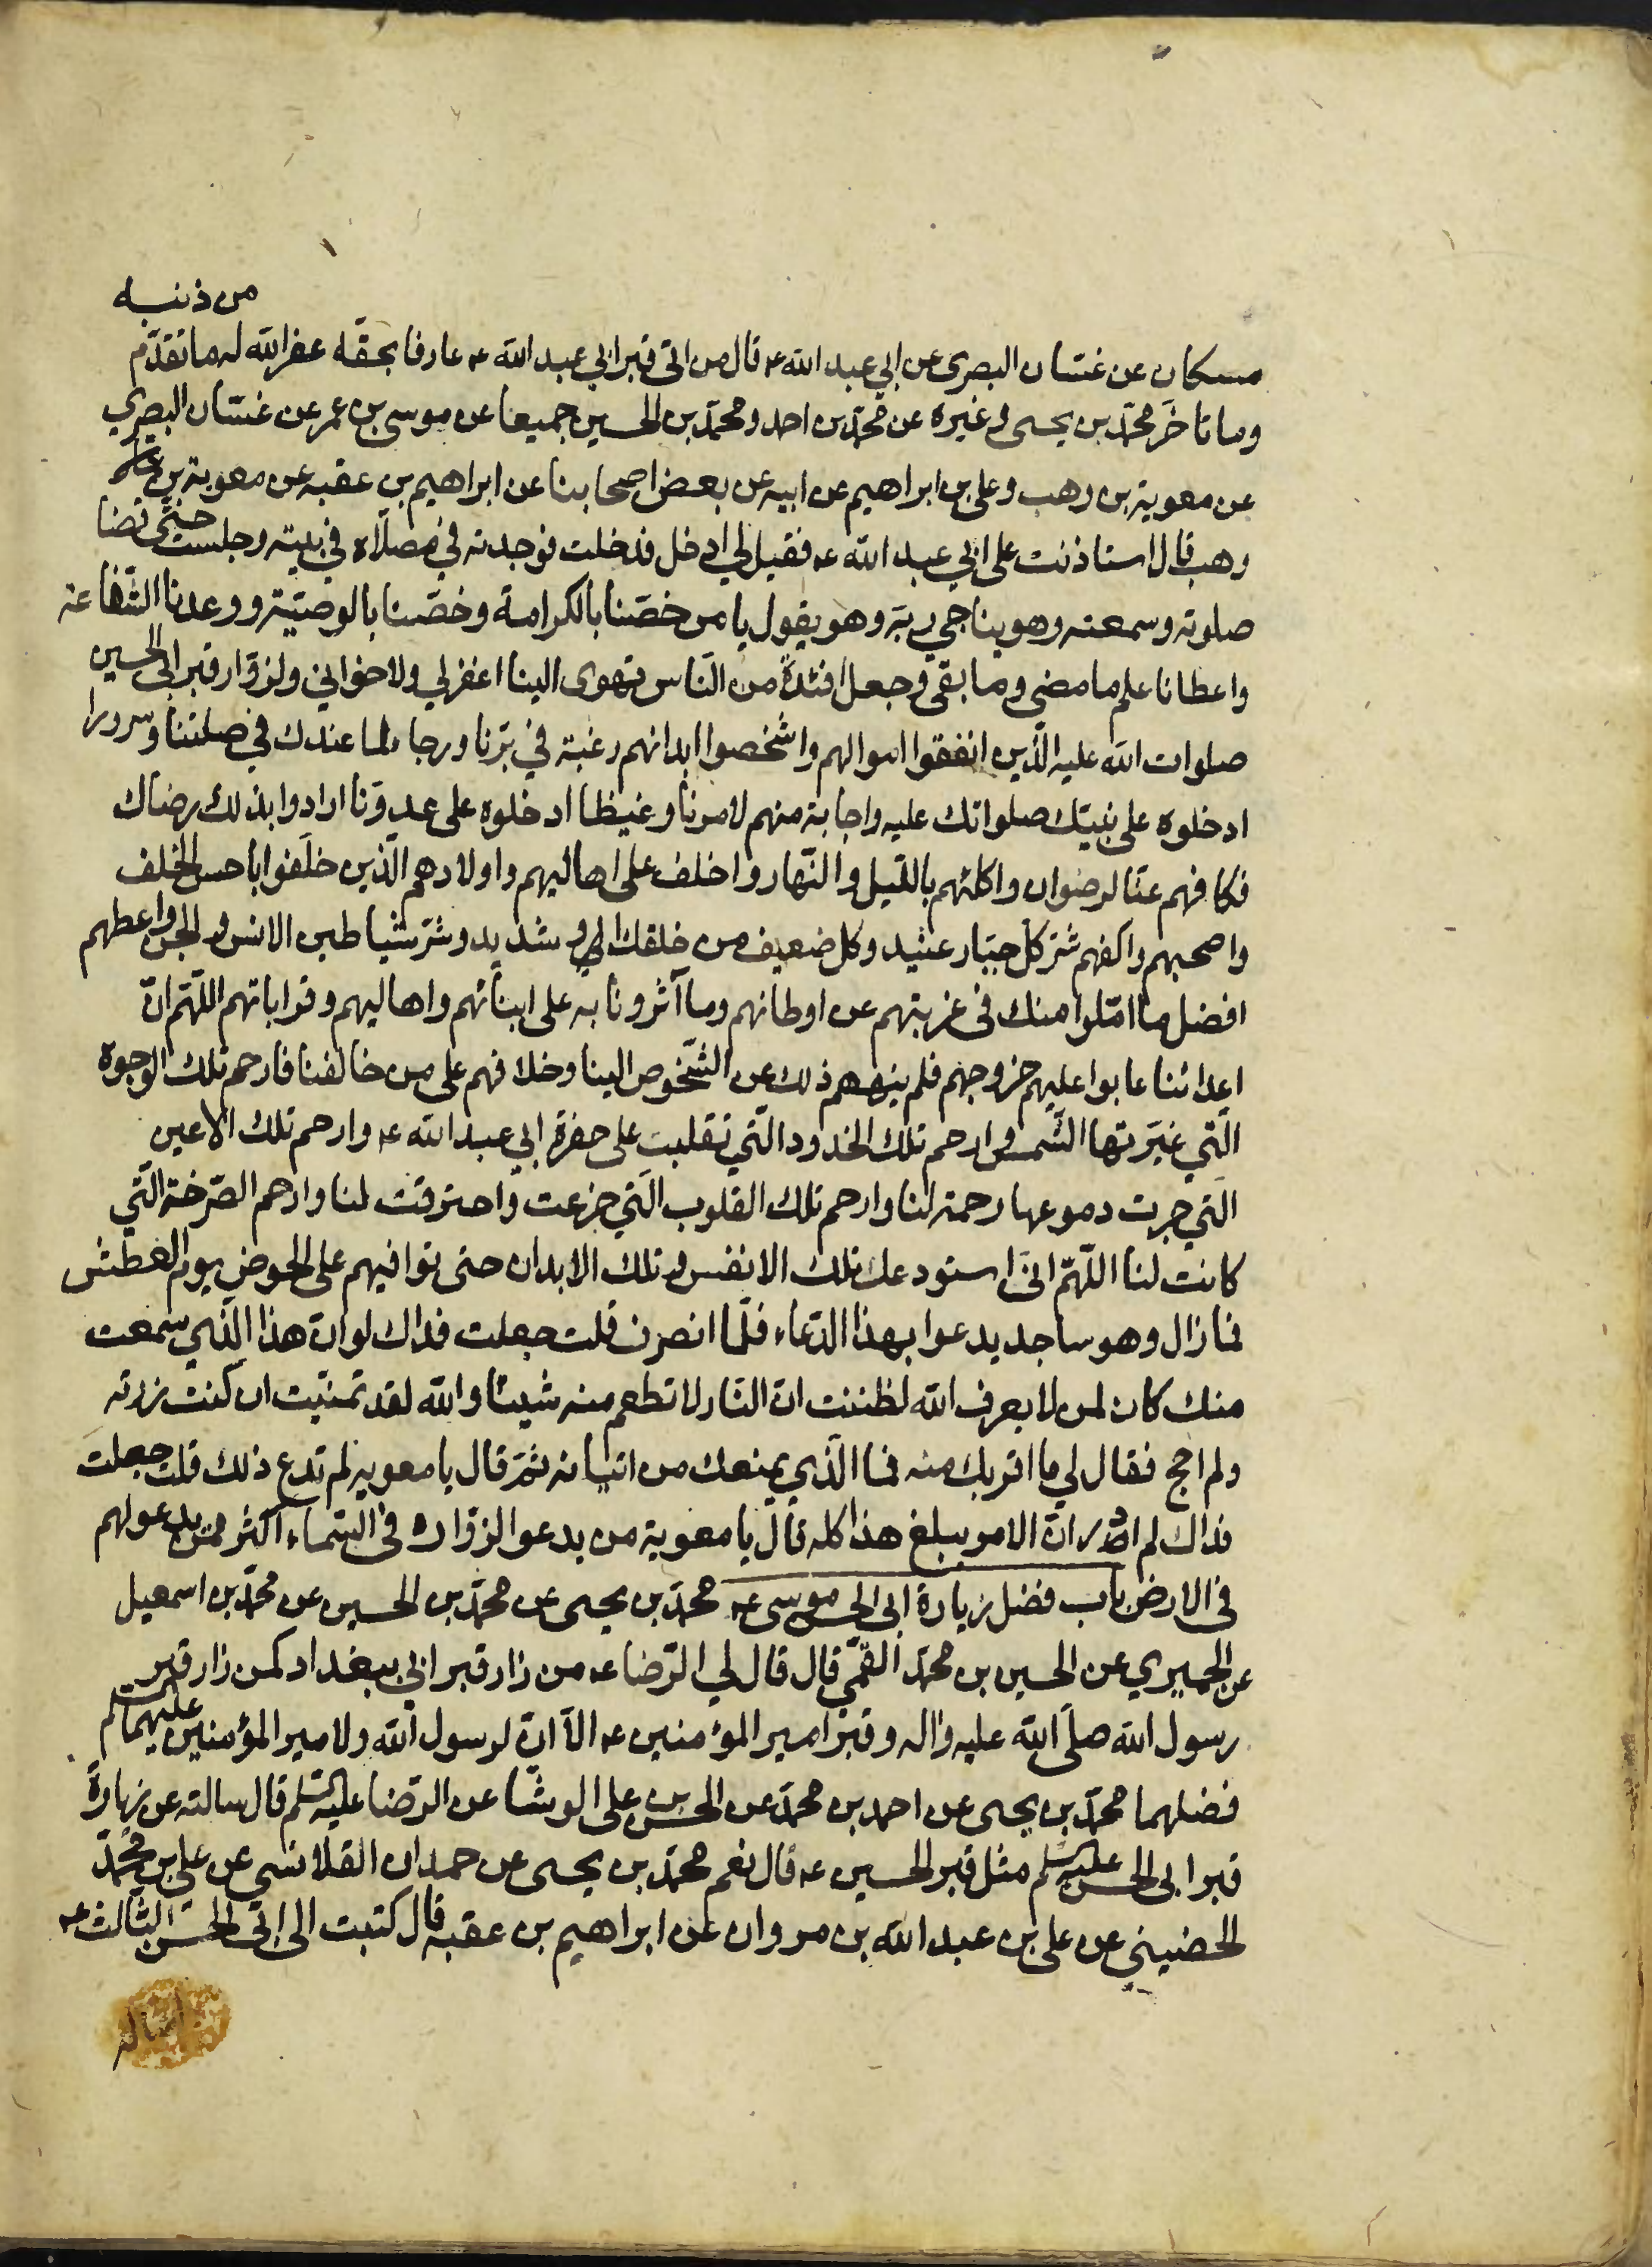 من ذنبه
مسكان عن غسّان البصرى عن ابي عبد الله ع قال من اتى قبر ابي عبد الله ع عارفا بحقّه غفر الله له ما تقدّم
وما تاخّر محمّد بن يحيى وغيره عن محمّد بن احمد ومحمّد بن الحسين جميعا عن موسى بن عمر عن غسّان البصري
عن معوية بن وهب وعلى بن ابراهيم عن ابيه عن بعض اصحابنا عن ابراهيم بن عقبه عن معوية بن
وهب قال استاذنت على ابي عبد الله ع فقيل لي ادخل فدخلت فوجدته في مصلّاه في بيته وجلست حتّى قضا
صلوته وسمعته وهو يناجي ربّه وهو يقول يا من خصّنا بالكرامة وخصّنا بالوصيّة ووعدنا الشّفاعة
واعطانا علم ما مضى وما بقى وجعل افئدة من النّاس تهوى الينا اغفر لي ولاخواني ولزوّار قبر ابى الحسين
صلوات الله عليه الّذين انفقوا اموالهم واشخصوا ابدانهم رغبة في برّنا ورجاء لما عندك في صلتنا وسرورا
ادخلوه على نبيّك صلواتك عليه واجابة منهم لامرنا وغيظا ادخلوه على عدوّنا ارادوا بذلك رضاك
فكافهم عنّا لرضوان واكلئهم باللّيل والنّهار واخلف على اهاليهم واولادهم الّذين خلّفوا باحسن الخلف
واصحبهم واكفهم شرّ كلّ جبّار عنيد وكل ضعيف من خلقك او شديد وشرّ شياطين الانس والجن واعطهم
افضل ما امّلوا منك فى غربتهم عن اوطانهم وما آثرونا به على ابنائهم واهاليهم وقراباتهم اللّهمّ انّ
اعدائنا عابوا عليهم خروجهم فلم ينههم ذلك عن الشّخوص الينا وخلافهم على من خالفنا فارحم تلك الوجوه
الّتي غيّرتها الشّمس وارحم تلك الخدود الّتي تقلبت على حفرة ابي عبد الله ع وارحم تلك الاعين
الّتي جرت دموعها رحمة لنا وارحم تلك القلوب الّتي جزعت واحترقت لنا وارحم الصّرخة الّتي
كانت لنا اللّهمّ انّى استودعك تلك الانفس وتلك الابدان حتى توافيهم على الحوض يوم العطش
فما زال وهو ساجد يدعوا بهذا الدّعاء فلمّا انصرف قلت جعلت فداك لو انّ هذا الّذي سمعت
منك كان لمن لا يعرف الله لظننت انّ النّار لا تطعم منه شيئا والله لقد تمنّيت ان كنت زرته
ولم احج فقال لي ما اقربك منه فما الّذي يمنعك من اتيانه ثمّ قال يا معوية لم تدع ذلك قلت جعلت
فداك لم ادر انّ الامر يبلغ هذا كله قال يا معوية من يدعو الزوّاره فى السّماء اكثر ممّن يدعو لهم
فى الارض باب فضل زيارة ابى الحسن موسى ع محمّد بن يحيى عن محمّد بن الحسين عن محمّد بن اسمعيل
عن الحميري عن الحسين بن محمّد القمّى قال قال لي الرّضا ع من زار قبر ابي ببغداد كمن زار قبر
رسول الله صلّى الله عليه واله وقبر امير المؤمنين ع الّا انّ لرسول الله ولامير المؤمنين عليهما السّلم
فضلهما محمّد بن يحيى عن احمد بن محمّد عن الحسن بن على الوشّا عن الرّضا عليه السّلم قال سالته عن زيارة
قبر ابى الحسن عليه السّلم مثل قبر الحسين ع قال نعم محمّد بن يحيى عن حمدان القلانسى عن على بن محمّد
الحضيني عن على بن عبد الله بن مروان عن ابراهيم بن عقبة قال كتبت الى ابى الحسن الثالث ع